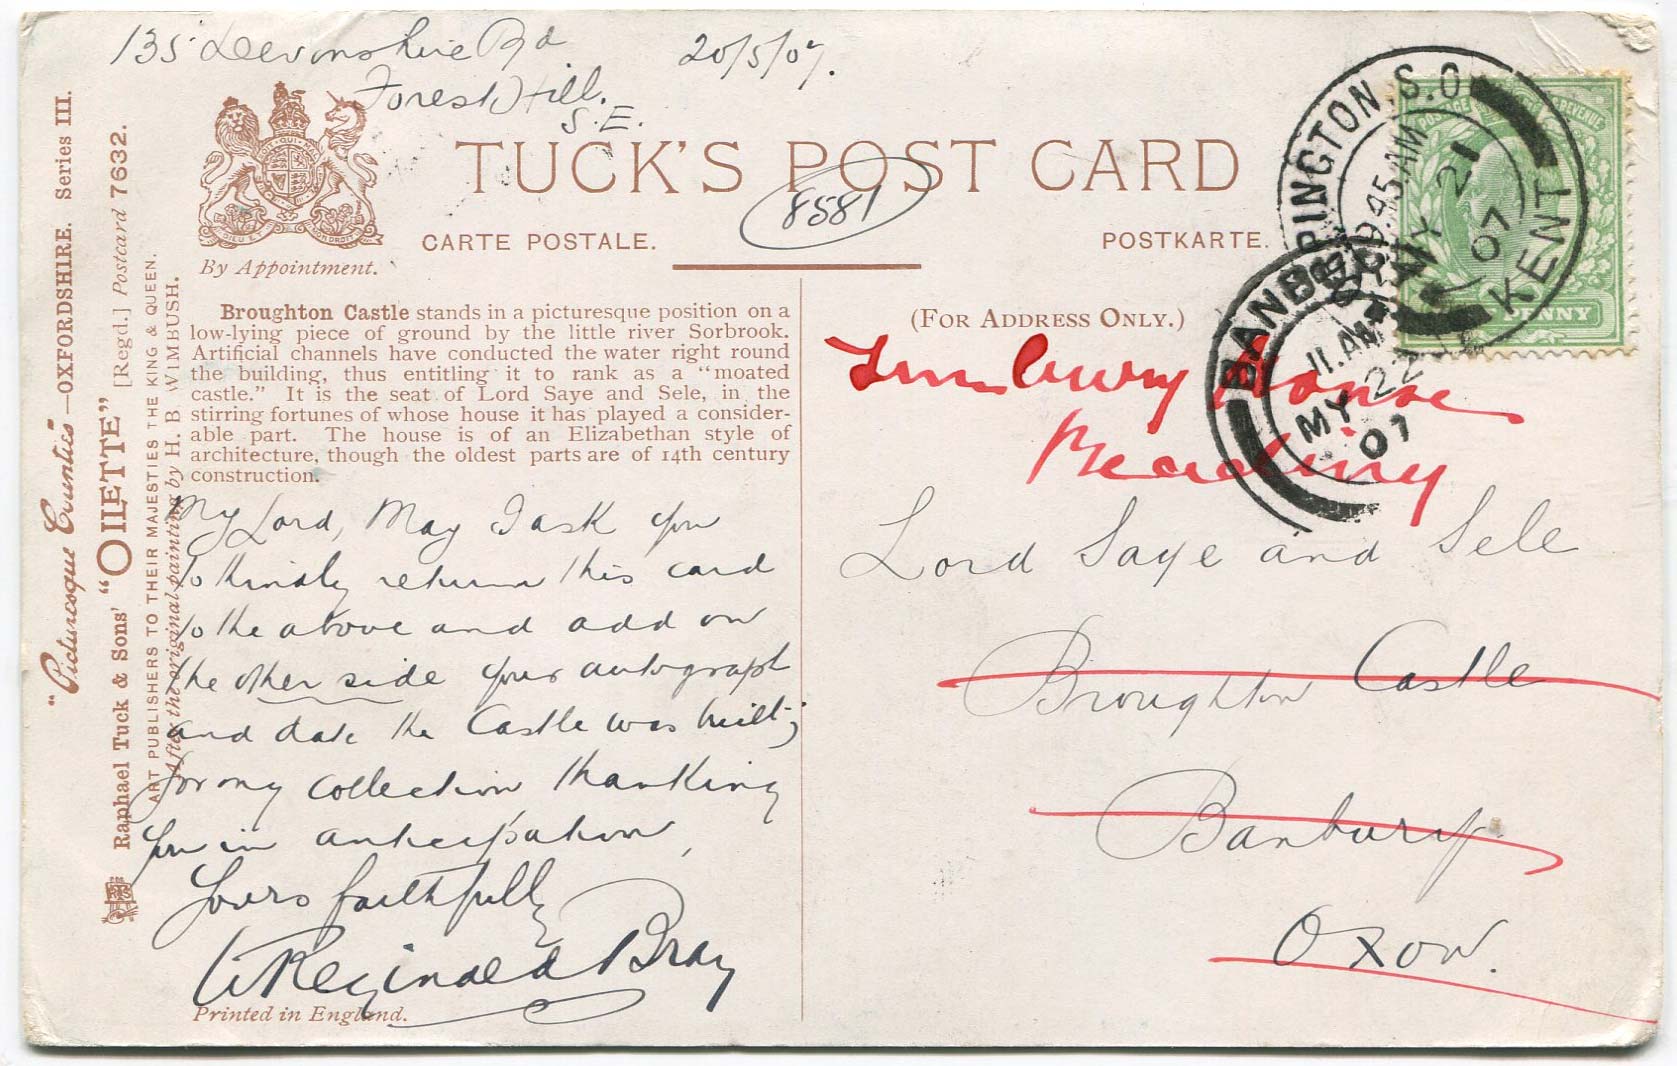 135 Devonshire Rd
Forest Hill.
S.E.
20/5/07.
TUCK'S POST CARD
8581
CARTE POSTALE.
POSTKARTE.
By Appointment.
"Picturesque Counties"—OXFORDSHIRE. Series III.
Raphael Tuck & Sons' "OILETTE" [Regd.] Postcard 7632.
ART PUBLISHERS TO THEIR MAJESTIES THE KING & QUEEN.
After the original painting by H. B. WIMBUSH.
Broughton Castle stands in a picturesque position on a
low-lying piece of ground by the little river Sorbrook.
Artificial channels have conducted the water right round
the building, thus entitling it to rank as a "moated
castle." It is the seat of Lord Saye and Sele, in the
stirring fortunes of whose house it has played a consider-
able part. The house is of an Elizabethan style of
architecture, though the oldest parts are of 14th century
construction.
My Lord, May I ask you
to kindly return this card
to the above and add on
the other side your autograph
and date the Castle was built;
for my collection thanking
you in anticipation,
Yours faithfully
W Reginald Bray
Printed in England.
(FOR ADDRESS ONLY.)
House
Reading
Lord Saye and Sele
Broughton Castle
Banbury
Oxon.
ORPINGTON S.O.
9.45 AM
MY 21
07
KENT
BANBURY
11. AM
MY 22
07
POSTAGE & REVENUE
PENNY